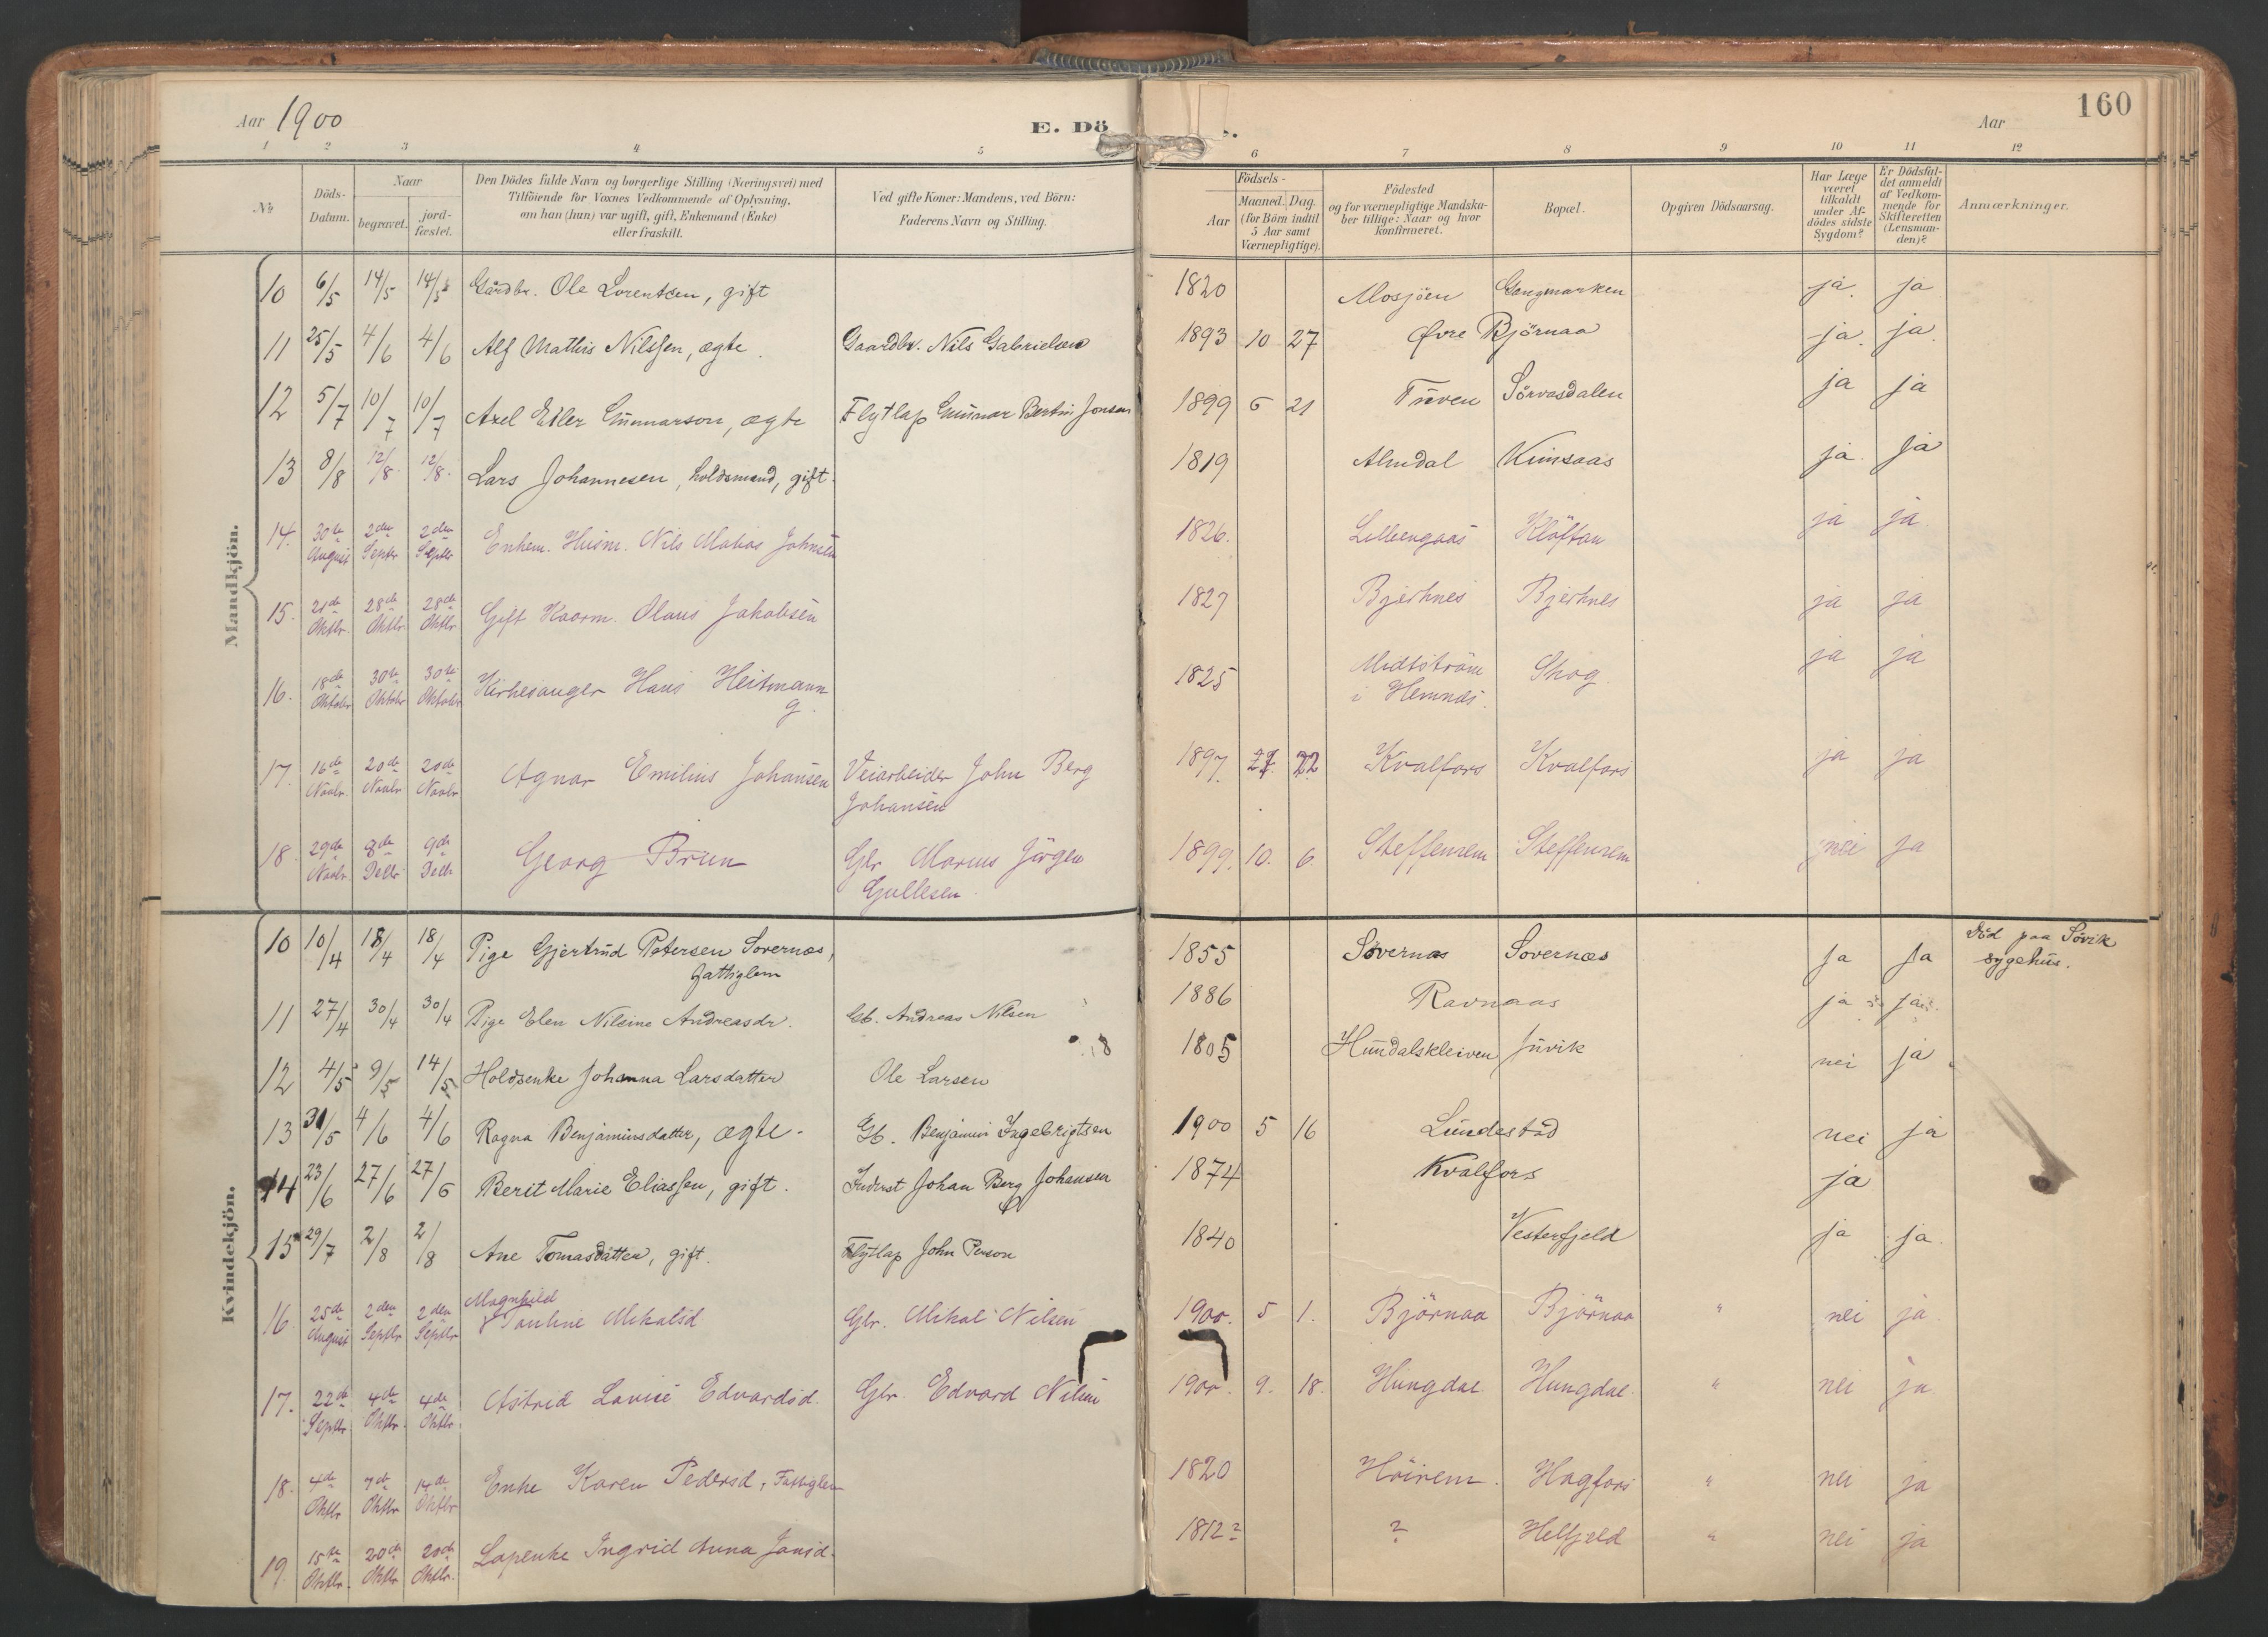 160
Aar 1900
E. Dö
Aar
1 2 3 4 5 6 7 8 9 10 11 12
№
Döds-
Datum.
Naar
begravet.
jord-
fæstet.
Den Dödes fulde Navn og borgerlige Stilling (Næringsvei) med
Tilföiende for Voxnes Vedkommende af Oplysning,
om han (hun) var ugift, gift, Enkemand (Enke)
eller fraskilt.
Ved gifte Koner: Mandens, ved Börn:
Faderens Navn og Stilling.
Födsels-
Aar
Maaned. Dag.
(for Börn indtil
5 Aar samt
Værnepligtige).
Födested
og for værnepligtige Mandska-
ber tillige: Naar og hvor
konfirmeret.
Bopæl.
Opgiven Dödsaarsag.
Har Læge
været
tilkaldt
under Af-
dödes sidste
Sygdom?
Er Dödsfal-
det anmeldt
af Vedkom-
mende for
Skifteretten
(Lensman-
den)?
Anmærkninger.
Mandkjön.
10 6/5 14/5 14/5 Gårdbr. Ole Lorentsen, gift 1820 Mosjöen Gangmarken ja. ja
11 25/5 4/6 4/6 Alf Mathis Nilssen, ægte. Gaardbr. Nils Gabrielsen 1893 10 27 Øvre Björnaa ja. ja.
12 5/7 10/7 10/7 Axel Edler Gunnarson, ægte Flytlap Gunnar Bertin Jonsen 1899 6 21 Tuven Sörvasdalen ja ja
13 8/8 12/8 12/8 Lars Johannesen, holdsmand, gift. 1819 Almdal Kimsaas ja. ja
14. 30te August 2den Septbr 2den Septbr Enkem. Husm. Nils Matias Johnsen 1826. Lillengaas Klöftan ja ja
15. 21de Oktbr. 28de Oktbr. 28de Oktbr. Gift Kaarm. Olaus Jakobsen 1827 Bjerknes Bjerknes ja ja
16. 18de Oktober 30te Oktober 30te Oktober Kirkesanger Hans Heitmann
g.
1825 Midtström
i Hemnes.
Skog ja ja
17. 16de Novbr. 20de Novbr 20de Novbr Agnar Emilius Johansen Veiarbeider John Berg
Johansen
1897. 22 Kvalfors Kvalfors ja ja
18. 29de Novbr 8de Decbr 9de Decbr Georg Brun Gbr. Marius Jörgen
Gullesen.
1899. 10. 6. Steffenrem Steffenrem nei ja
Kvindekjön.
10 10/4 18/4 18/4 Pige Gjertrud Petersen Sovernæs,
fattiglem
1855 Sövernæs Sovernæs ja ja Död paa Sövik
sygehus.
11 27/4 30/4 30/4 Pige Elen Nilsine Andreasdr. Gb. Andreas Nilsen 1886 Ravnaas ja ja
12 4/5 9/5 14/5 Holdsenke Johanna Larsdatter Ole Larsen 1805 Hundalskleiven Juvik nei ja
13 31/5 4/6 4/6 Ragna Benjaminsdatter, ægte. Gb. Benjamin Ingebrigtsen 1900 5 16 Lundestad nei ja
14 23/6 27/6 27/6 Berit Marie Eliassen, gift. Inderst Johan Berg Johansen 1874 Kvalfors ja
15 29/7 2/8 2/8 Ane Tomasdatter, gift. Flytlap John Person 1840 Vesterfjeld ja ja.
16. 25de August 2den Septbr 2den Septbr Magnhild
Pauline Mikalsd. Gbr. Mikal Nilsen 1900. 5 1. Björnaa Björnaa " nei ja
17. 22de Septbr 4de Oktbr. 4de Oktbr. Astrid Lovise Edvardsd. Gbr. Edvard Nilsen 1900. 9. 18. Hungdal. Hungdal. " nei ja
18. 4de Oktbr 7de Oktbr 14de Oktbr Enke Karen Pedersd, Fattiglem 1820 Höirem. Hagfors " nei ja
19. 15te Oktbr. 20de Oktbr. 20de Oktbr. Lapenke Ingrid Anna Jonsd. 1812? ? Helfjeld " nei ja